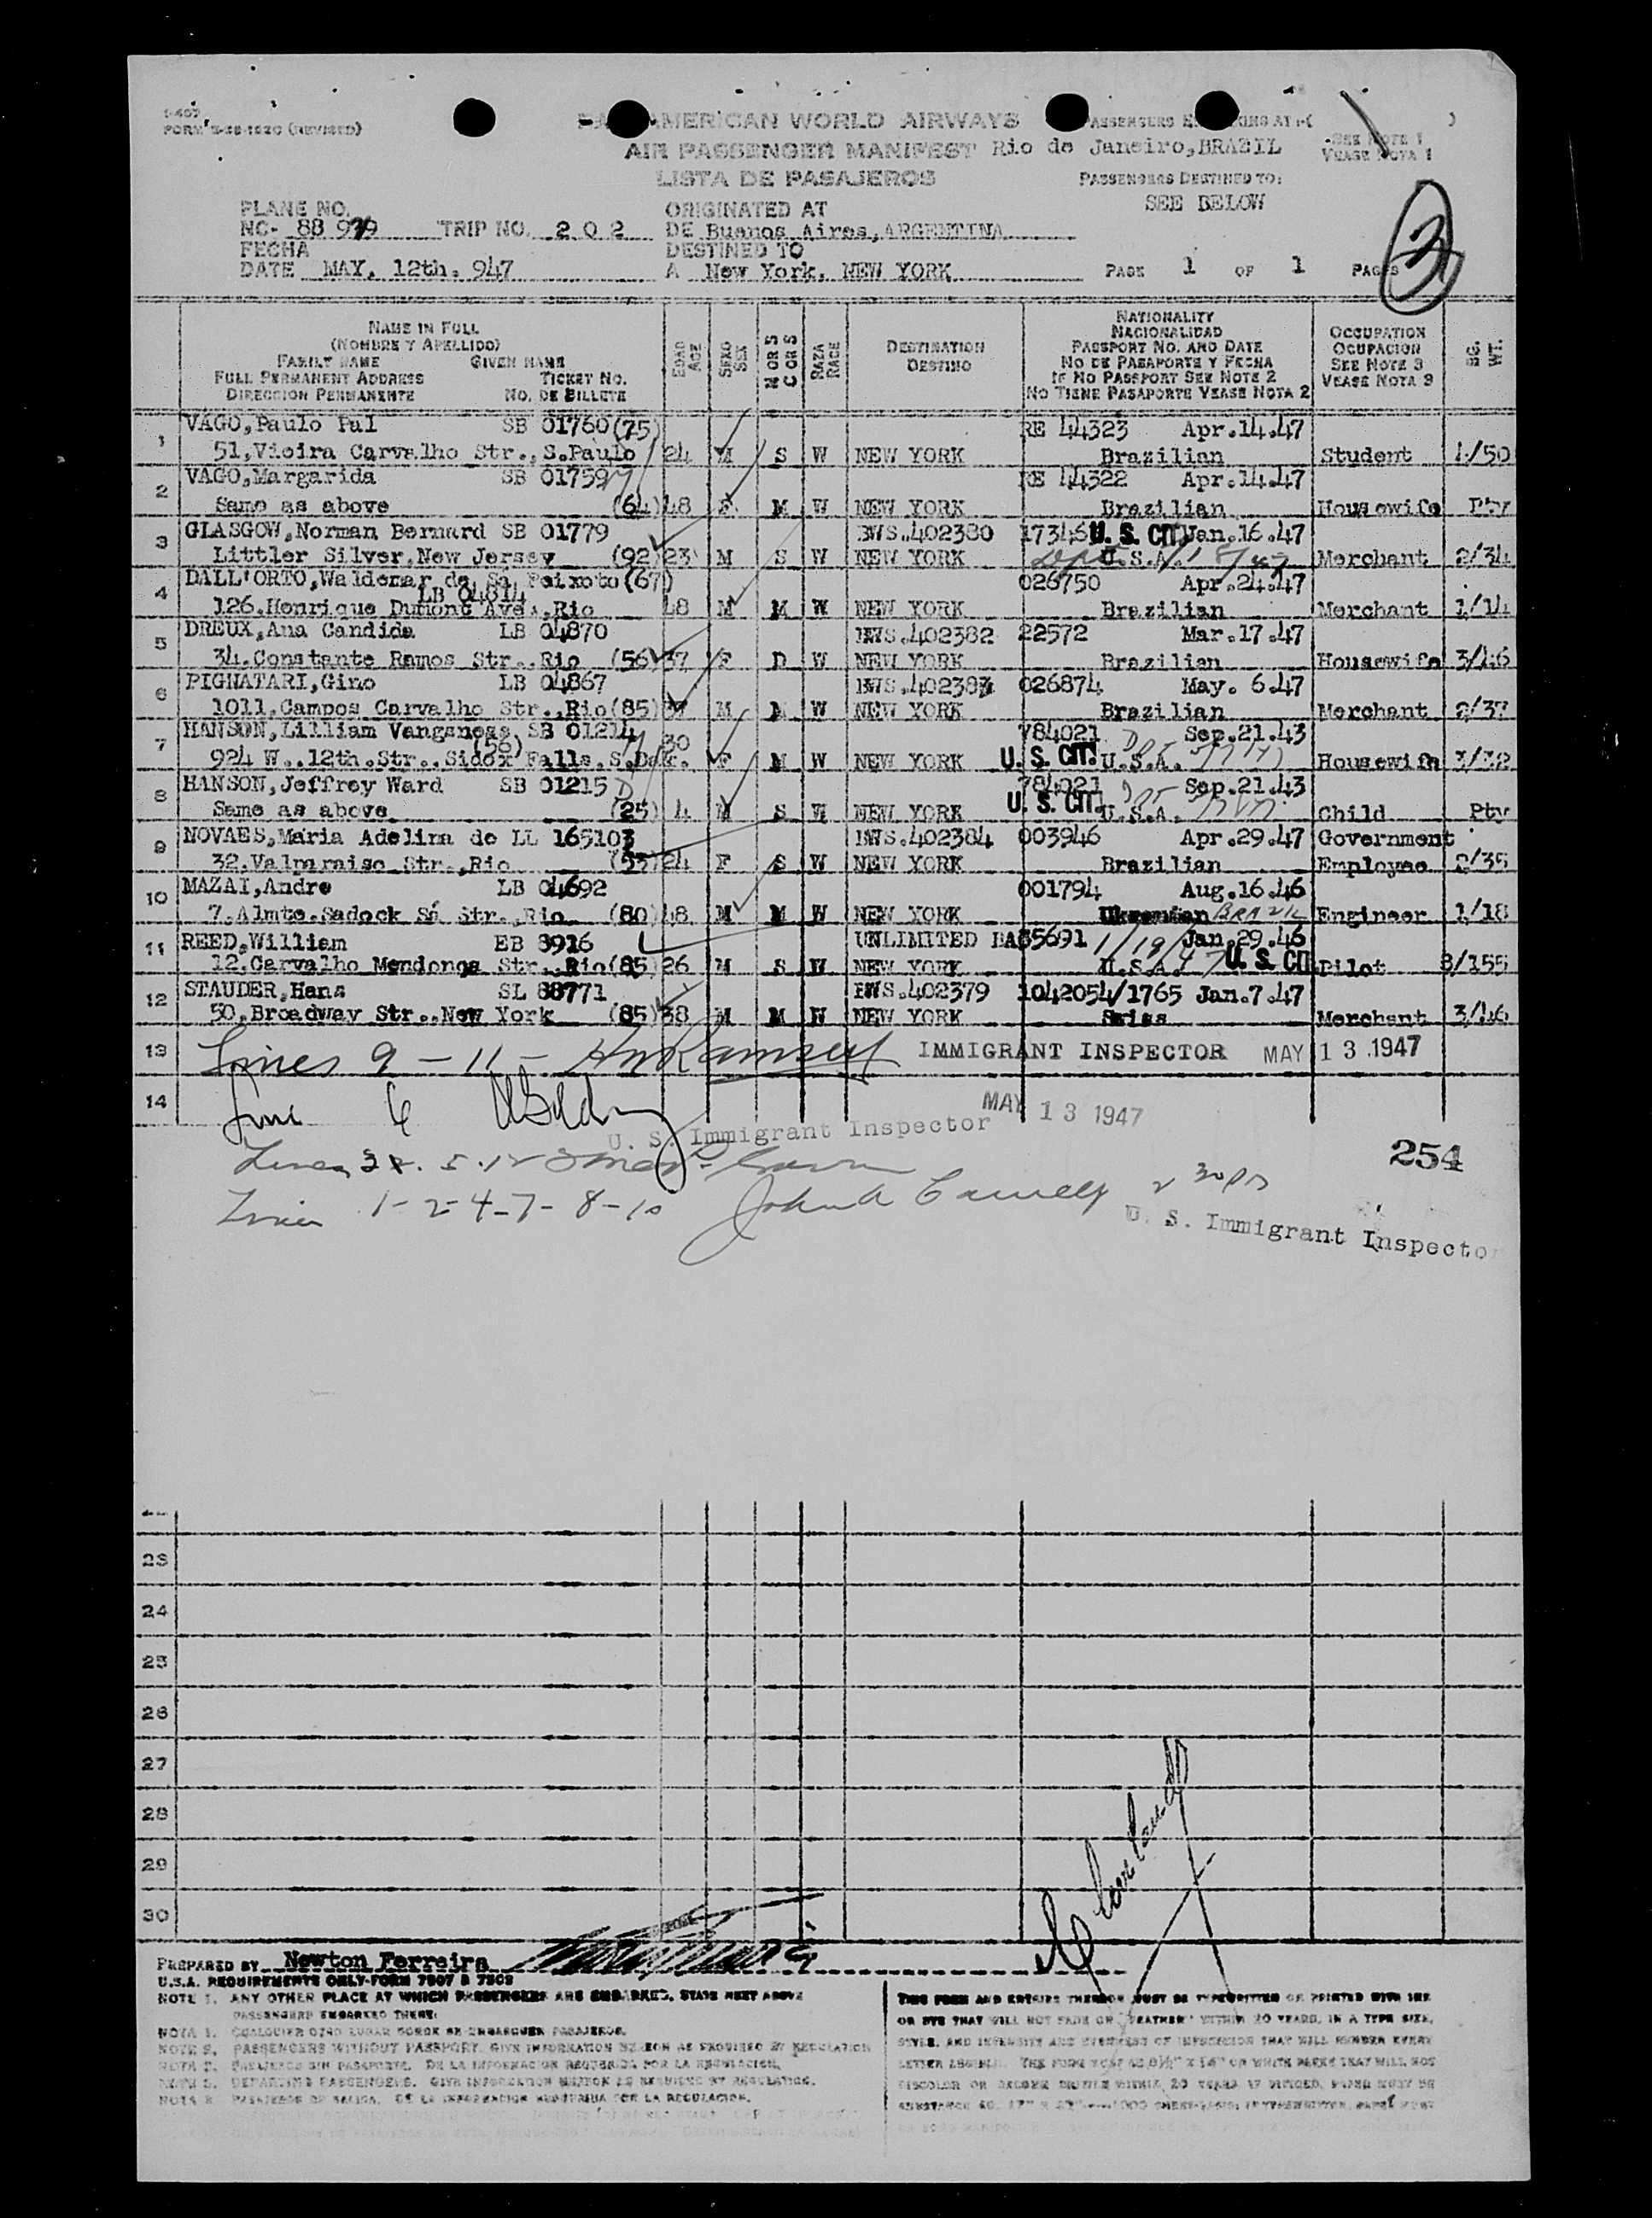 I-407
FORM (REVISED)
AMERICAN WORLD AIRWAYS
AIR PASSENGER MANIFEST
LISTA DE PASAJEROS
Rio de Janeiro,BRAZIL
SEE NOTE 1
VEASE NOTA 1
PASSENGERS DESTINED TO:
SEE BELOW
PLANE NO.
NC- TRIP NO. 202
ORIGINATED AT
DE Buenos Aires,ARGENTINA
FECHA
DATE MAY. 12th. 947
DESTINED TO
A New York, NEW YORK
PAGE 1 OF 1 PAGES
NAME IN FULL
(NOMBRE Y APELLIDO)
FAMILY NAME GIVEN NAME
FULL PERMANENT ADDRESS TICKET NO.
DIRECCION PERMANENTE NO. DE BILLETE
EDAD AGE
SEXO SEX
RAZA RACE
DESTINATION
DESTINO
NATIONALITY
NACIONALIDAD
PASSPORT NO. AND DATE
NO DE PASAPORTE Y FECHA
IF NO PASSPORT SEE NOTE 2
NO TIENE PASAPORTE VEASE NOTA 2
OCCUPATION
OCUPACION
SEE NOTE 3
VEASE NOTA 3
WT.
1 VAGO,Paulo Pal SB 01760 (75) RE 44323 Apr.14.47
51,Vieira Carvalho Str.,S.Paulo 24 M S W NEW YORK Brazilian Student 1/50
2 VAGO,Margarida SB 01759 RE 44322 Apr.14.47
Same as above (64) 48 F M W NEW YORK Brazilian Housewife Pty
3 GLASGOW,Norman Bernard SB 01779 BWS.402380 U. S. CIT. Jan.16.47
Littler Silver,New Jersey (92) 23 M S W NEW YORK U.S.A. Merchant 2/34
4 DALL'ORTO,Waldemar de Sa Peixoto (67) 026750 Apr.24.47
LB 04814
126.Henrique Dumont Ave.,Rio 48 M M W NEW YORK Brazilian Merchant 1/14
5 DREUX,Ana Candida LB 04870 BWS.402382 22572 Mar.17.47
34.Constante Ramos Str.,Rio (56) 37 F D W NEW YORK Brazilian Housewife 3/46
6 PIGNATARI,Gino LB 04867 026874 May. 6.47
1011.Campos Carvalho Str.,Rio (85) M M W NEW YORK Brazilian Merchant 2/37
7 HANSON,Lilliam Vangsness SB 01214 30 784021 Sep.21.43
924 W..12th.Str.,Sidox Falls.S.Dak. (56) F M W NEW YORK U. S. CIT. U.S.A. Housewife 3/32
8 HANSON,Jeffrey Ward SB 01215 784021 Sep.21.43
Same as above (25) 4 M S W NEW YORK U. S. CIT. U.S.A. Child Pty
9 NOVAES,Maria Adelina de LL 165103 BWS.402384 003946 Apr.29.47 Government
32.Valparaiso Str.,Rio (53) 24 F S W NEW YORK Brazilian Employee 2/35
10 MAZAI,Andre LB 04692 001794 Aug.16.46
7.Almte.Sadock Sá Str.,Rio (80) 48 M M W NEW YORK BRAZIL Engineer 1/18
11 REED,William EB 8916 UNLIMITED 1/19/47 Jan.29.46
12.Carvalho Mendonça Str.,Rio (85) 26 M S W NEW YORK U.S.A. U. S. CIT. Pilot 8/155
12 STAUDER,Hans SL 88771 BWS.402379 1042054/1765 Jan.7.47
50.Broadway Str.,New York (85) 38 M M W NEW YORK Swiss Merchant 3/46
13 Lines 9 - 11 - IMMIGRANT INSPECTOR MAY 13 1947
14 Line 6
MAY 13 1947
U. S. Immigrant Inspector
254
Lines 5.12
Lines 1-2-4-7-8-10
U. S. Immigrant Inspector
23
24
25
26
27
28
29
30
PREPARED BY Newton Ferreira
U.S.A. REQUIREMENTS ONLY-FORM 7507 & 7508
NOTE 1. ANY OTHER PLACE AT WHICH PASSENGERS ARE EMBARKED, STATE NEXT ABOVE
PASSENGERS EMBARKED THERE.
NOTA 1. CUALQUIER OTRO LUGAR DONDE SE EMBARQUEN PASAJEROS.
NOTE 2. PASSENGERS WITHOUT PASSPORT. GIVE INFORMATION HEREON AS REQUIRED BY REGULATION
NOTA 2. PASAJEROS SIN PASAPORTE. DE LA INFORMACION REQUERIDA POR LA REGULACION.
NOTE 3. DEPARTING PASSENGERS. GIVE INFORMATION HEREON AS REQUIRED BY REGULATION.
NOTA 3. PASAJEROS DE SALIDA. DE LA INFORMACION REQUERIDA POR LA REGULACION.
THIS FORM AND ENTRIES THEREON MUST BE TYPEWRITTEN OR PRINTED WITH INK
OR DYE THAT WILL NOT FADE OR "FEATHER" WITHIN 20 YEARS, IN A TYPE SIZE,
STYLE, AND INTENSITY AND EVENNESS OF IMPRESSION THAT WILL RENDER EVERY
LETTER LEGIBLE. THE FORM MUST BE 8½" x 14" ON WHITE PAPER THAT WILL NOT
DISCOLOR OR BECOME BRITTLE WITHIN 20 YEARS